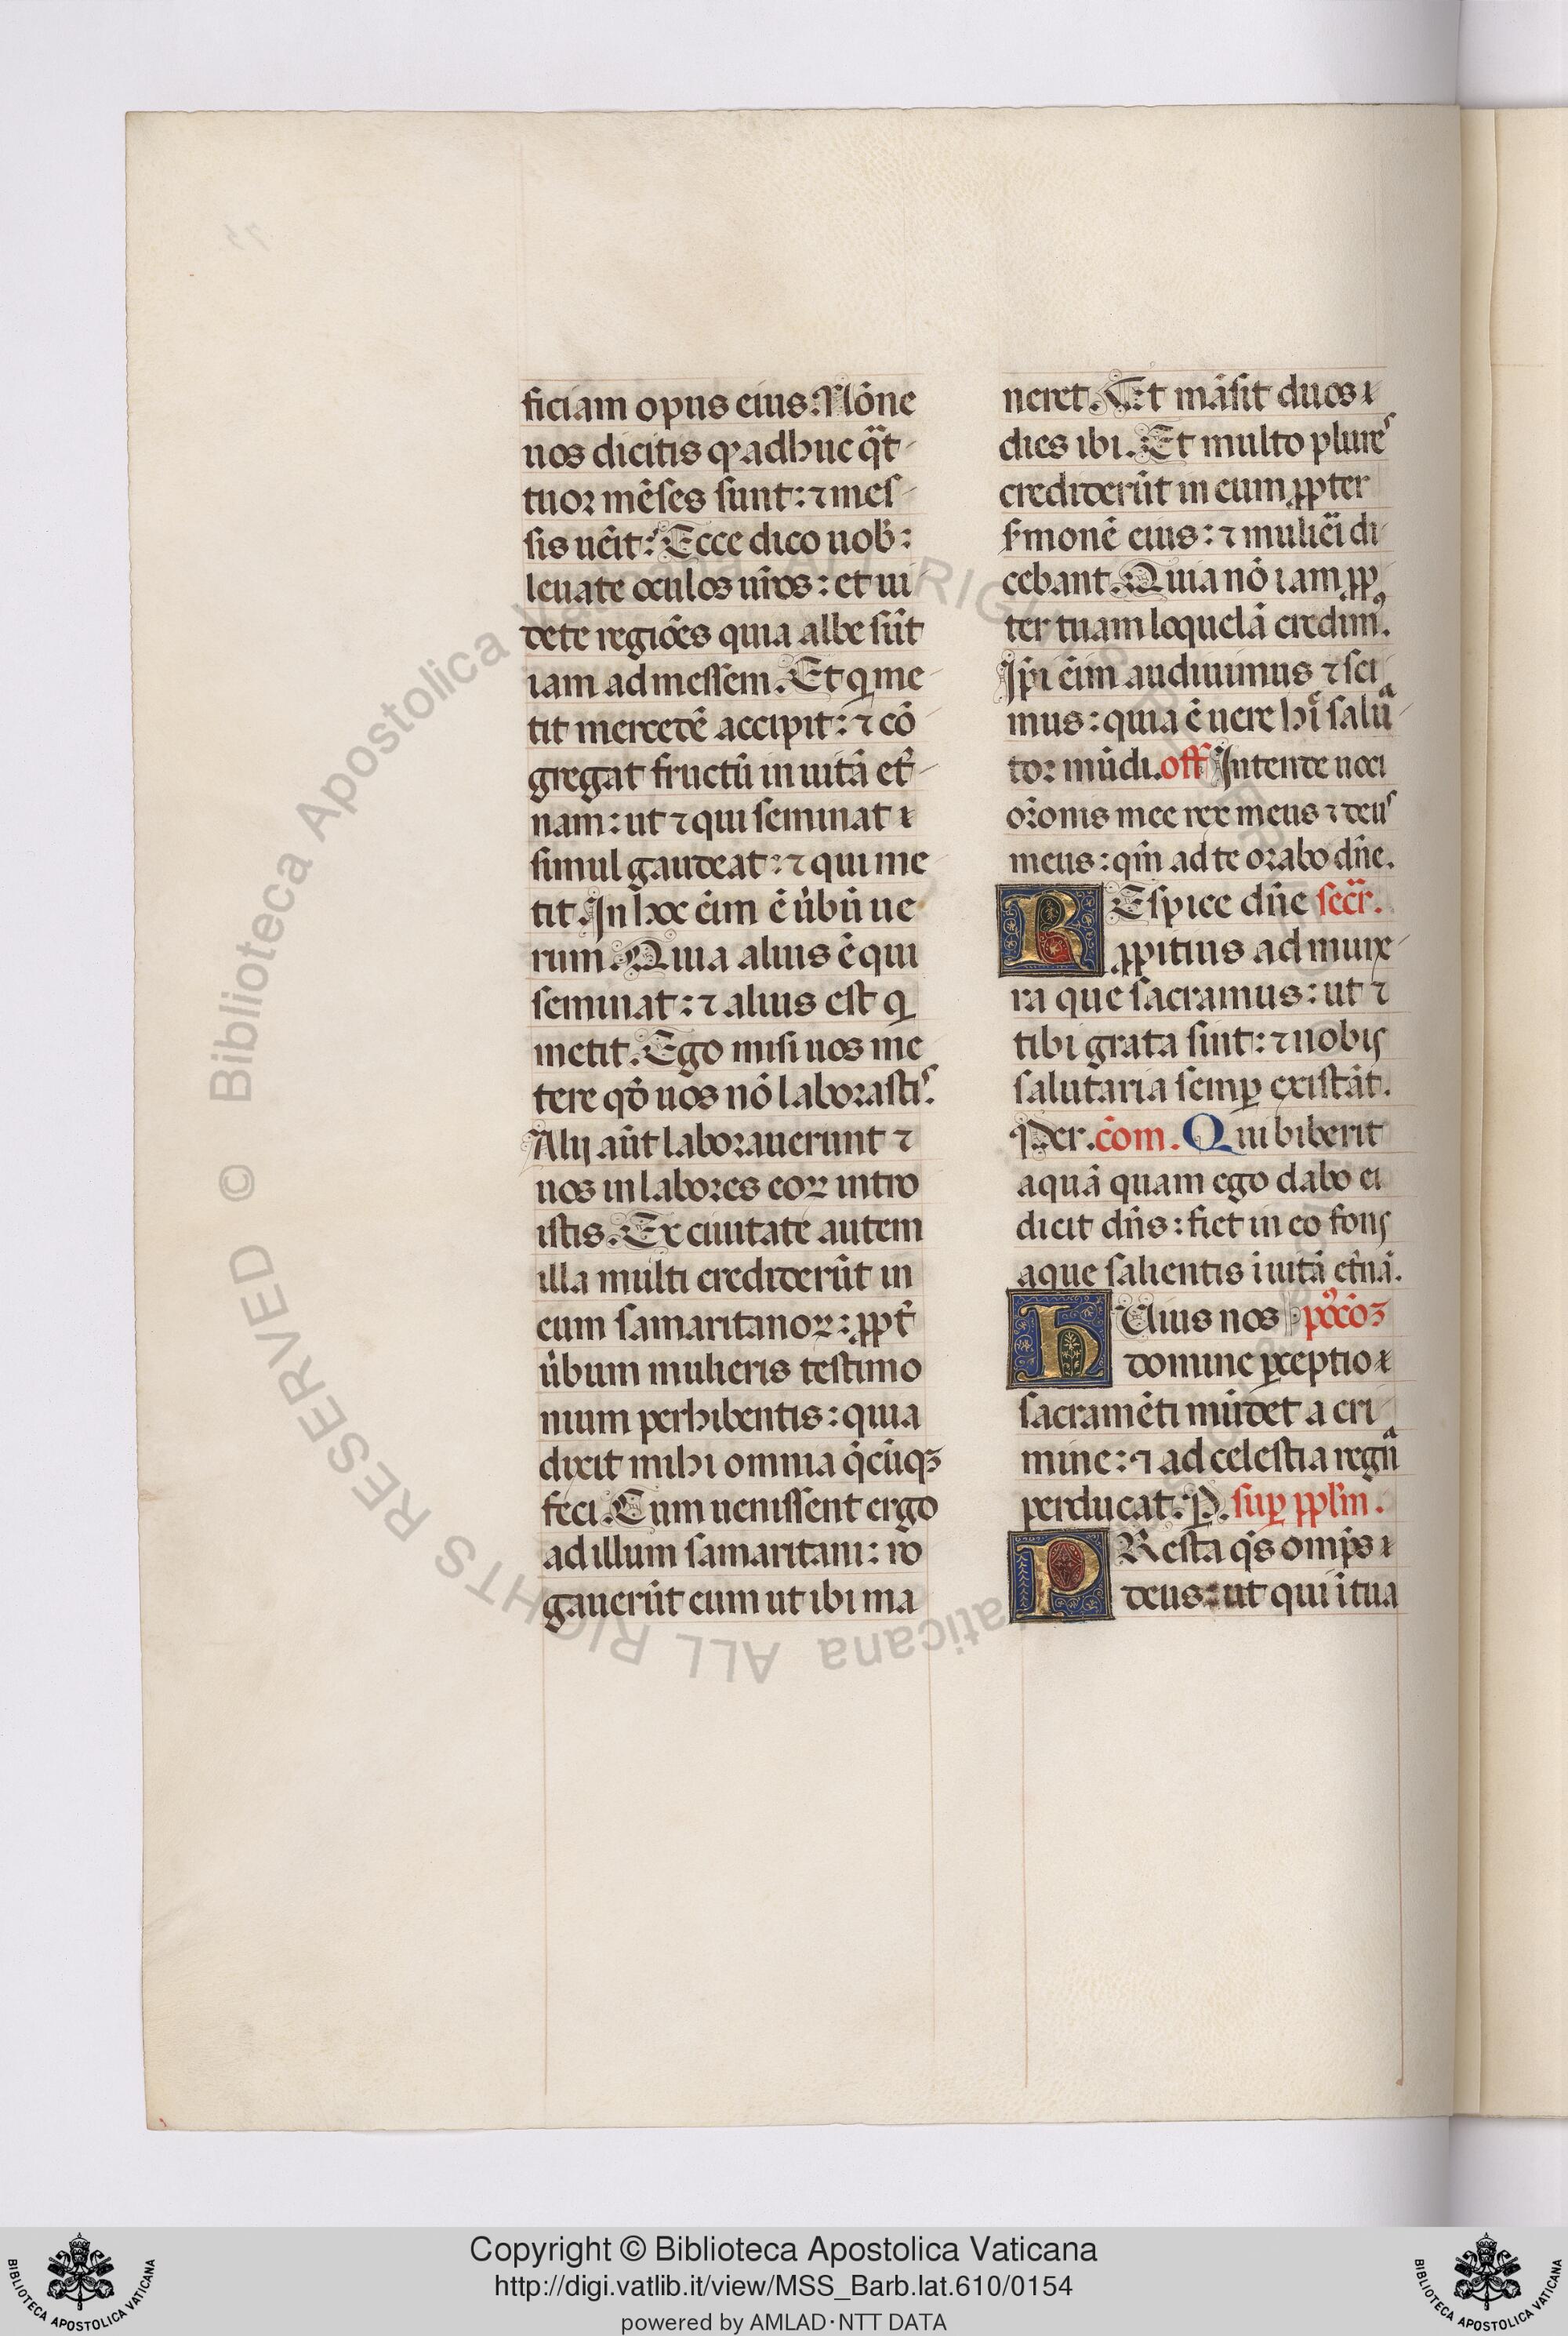 ficiam opus eius. Nōne
nos dicitis ꝙ adhuc qͣt
tuor mēses sunt: ⁊ mes
sis uēit? Ecce dico uob̄:
leuate oculos ur̄os: et ui
dete regiōes quia albe sūt
iam ad messem. Et q̇ me
tit mercedē accipit: ⁊ cō
gregat fructū in uitā et̄
nam: ut ⁊ qui seminat
simul gaudeat: ⁊ qui me
tit. In hoc eīm ē u̇bū ue
rum. Quia alius ē qui
seminat: ⁊ alius est q̇
metit. Ego misi uos me
tere qď uos nō laborastis.
Alij aūt laborauerunt ⁊
uos in labores eoꝝ intro
istis. Ex ciuitate autem
illa multi crediderūt in
eum samaritanoꝝ: ꝓpt̄
u̇bum mulieris testimo
nium perhibentis: quia
dixit mihi omnia q̄cūqꝫ
feci. Cum uenissent ergo
ad illum samaritani: ro
gauerūt eum ut ibi ma
neret. Et māsit duos
dies ibi. Et multo plures
crediderūt in eum ꝓpter
s̄monē eius: ⁊ mulieī di
cebant. Quia nō iam ꝓp
ter tuam loquelā credimꝰ.
Ip̄i eīm audiuimus ⁊ sci
mus: quia ē uere hı̄ saluͣ
tor mūdi. off Intende uoci
or̄onis mee rex meus ⁊ deus
meus: qm̄ ad te orabo dn̄e.
REspice dn̄e secr̄.
ꝓpitius ad mune
ra que sacramus: ut ⁊
tibi grata sint: ⁊ nobis
salutaria semꝑ existāt.
Per. cōm. Qui biberit
aquā quam ego dabo ei
dicit dn̄s: fiet in eo fons
aque salientis ī uitā et̄nā.
hUius nos pꝰcōꝫ
domine ꝑceptio
sacramēti mūdet a cri
mine: ⁊ ad celestia regnͣ
perducat. P. suꝑ ppl̄m.
PResta qs̄ omp̄s
deus: ut qui ī tua
Copyright © Biblioteca Apostolica Vaticana
http://digi.vatlib.it/view/MSS_Barb.lat.610/0154
powered by AMLAD·NTT DATA
© Biblioteca Apostolica Vaticana ALL RIGHTS RESERVED
© Biblioteca Apostolica Vaticana ALL RIGHTS RESERVED
BIBLIOTECA APOSTOLICA VATICANA
BIBLIOTECA APOSTOLICA VATICANA